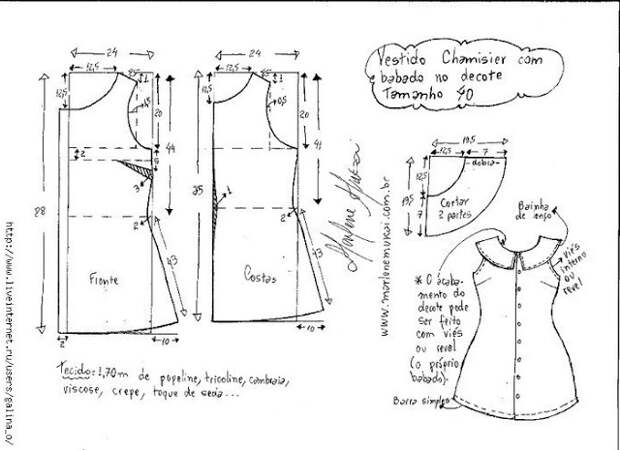 Vestido Chamisier com
babado no decote
Tamanho 40
24
12,5
12,5
20
0,5
2
44
3
2
88
Frente
43
2
10
24
12,5
20
0,5
41
1
85
2
43
Costas
10
Marlene Mukai
www.marlenemukai.com.br
19,5
12,5
7
dobra
12,5
19,5
7
Cortar
2 partes
Bainha
de lenço
viés
interno
ou
revel
* O acaba-
mento do
decote pode
ser feito
com viés
ou revel
(o próprio
babado).
Barra simples
Tecido: 1,70m de popeline, tricoline, cambraia,
viscose, crepe, toque de seda...
http://www.liveinternet.ru/users/galina_o/